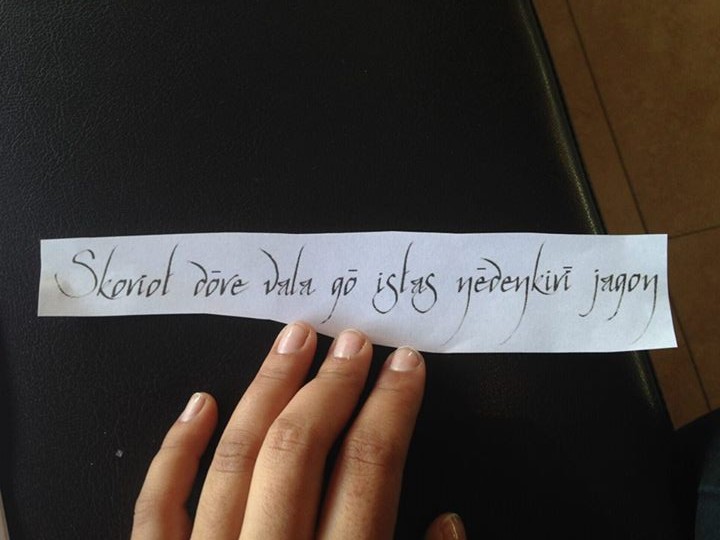 Skoriot dōre vala gō istas nēdenkirī jagon